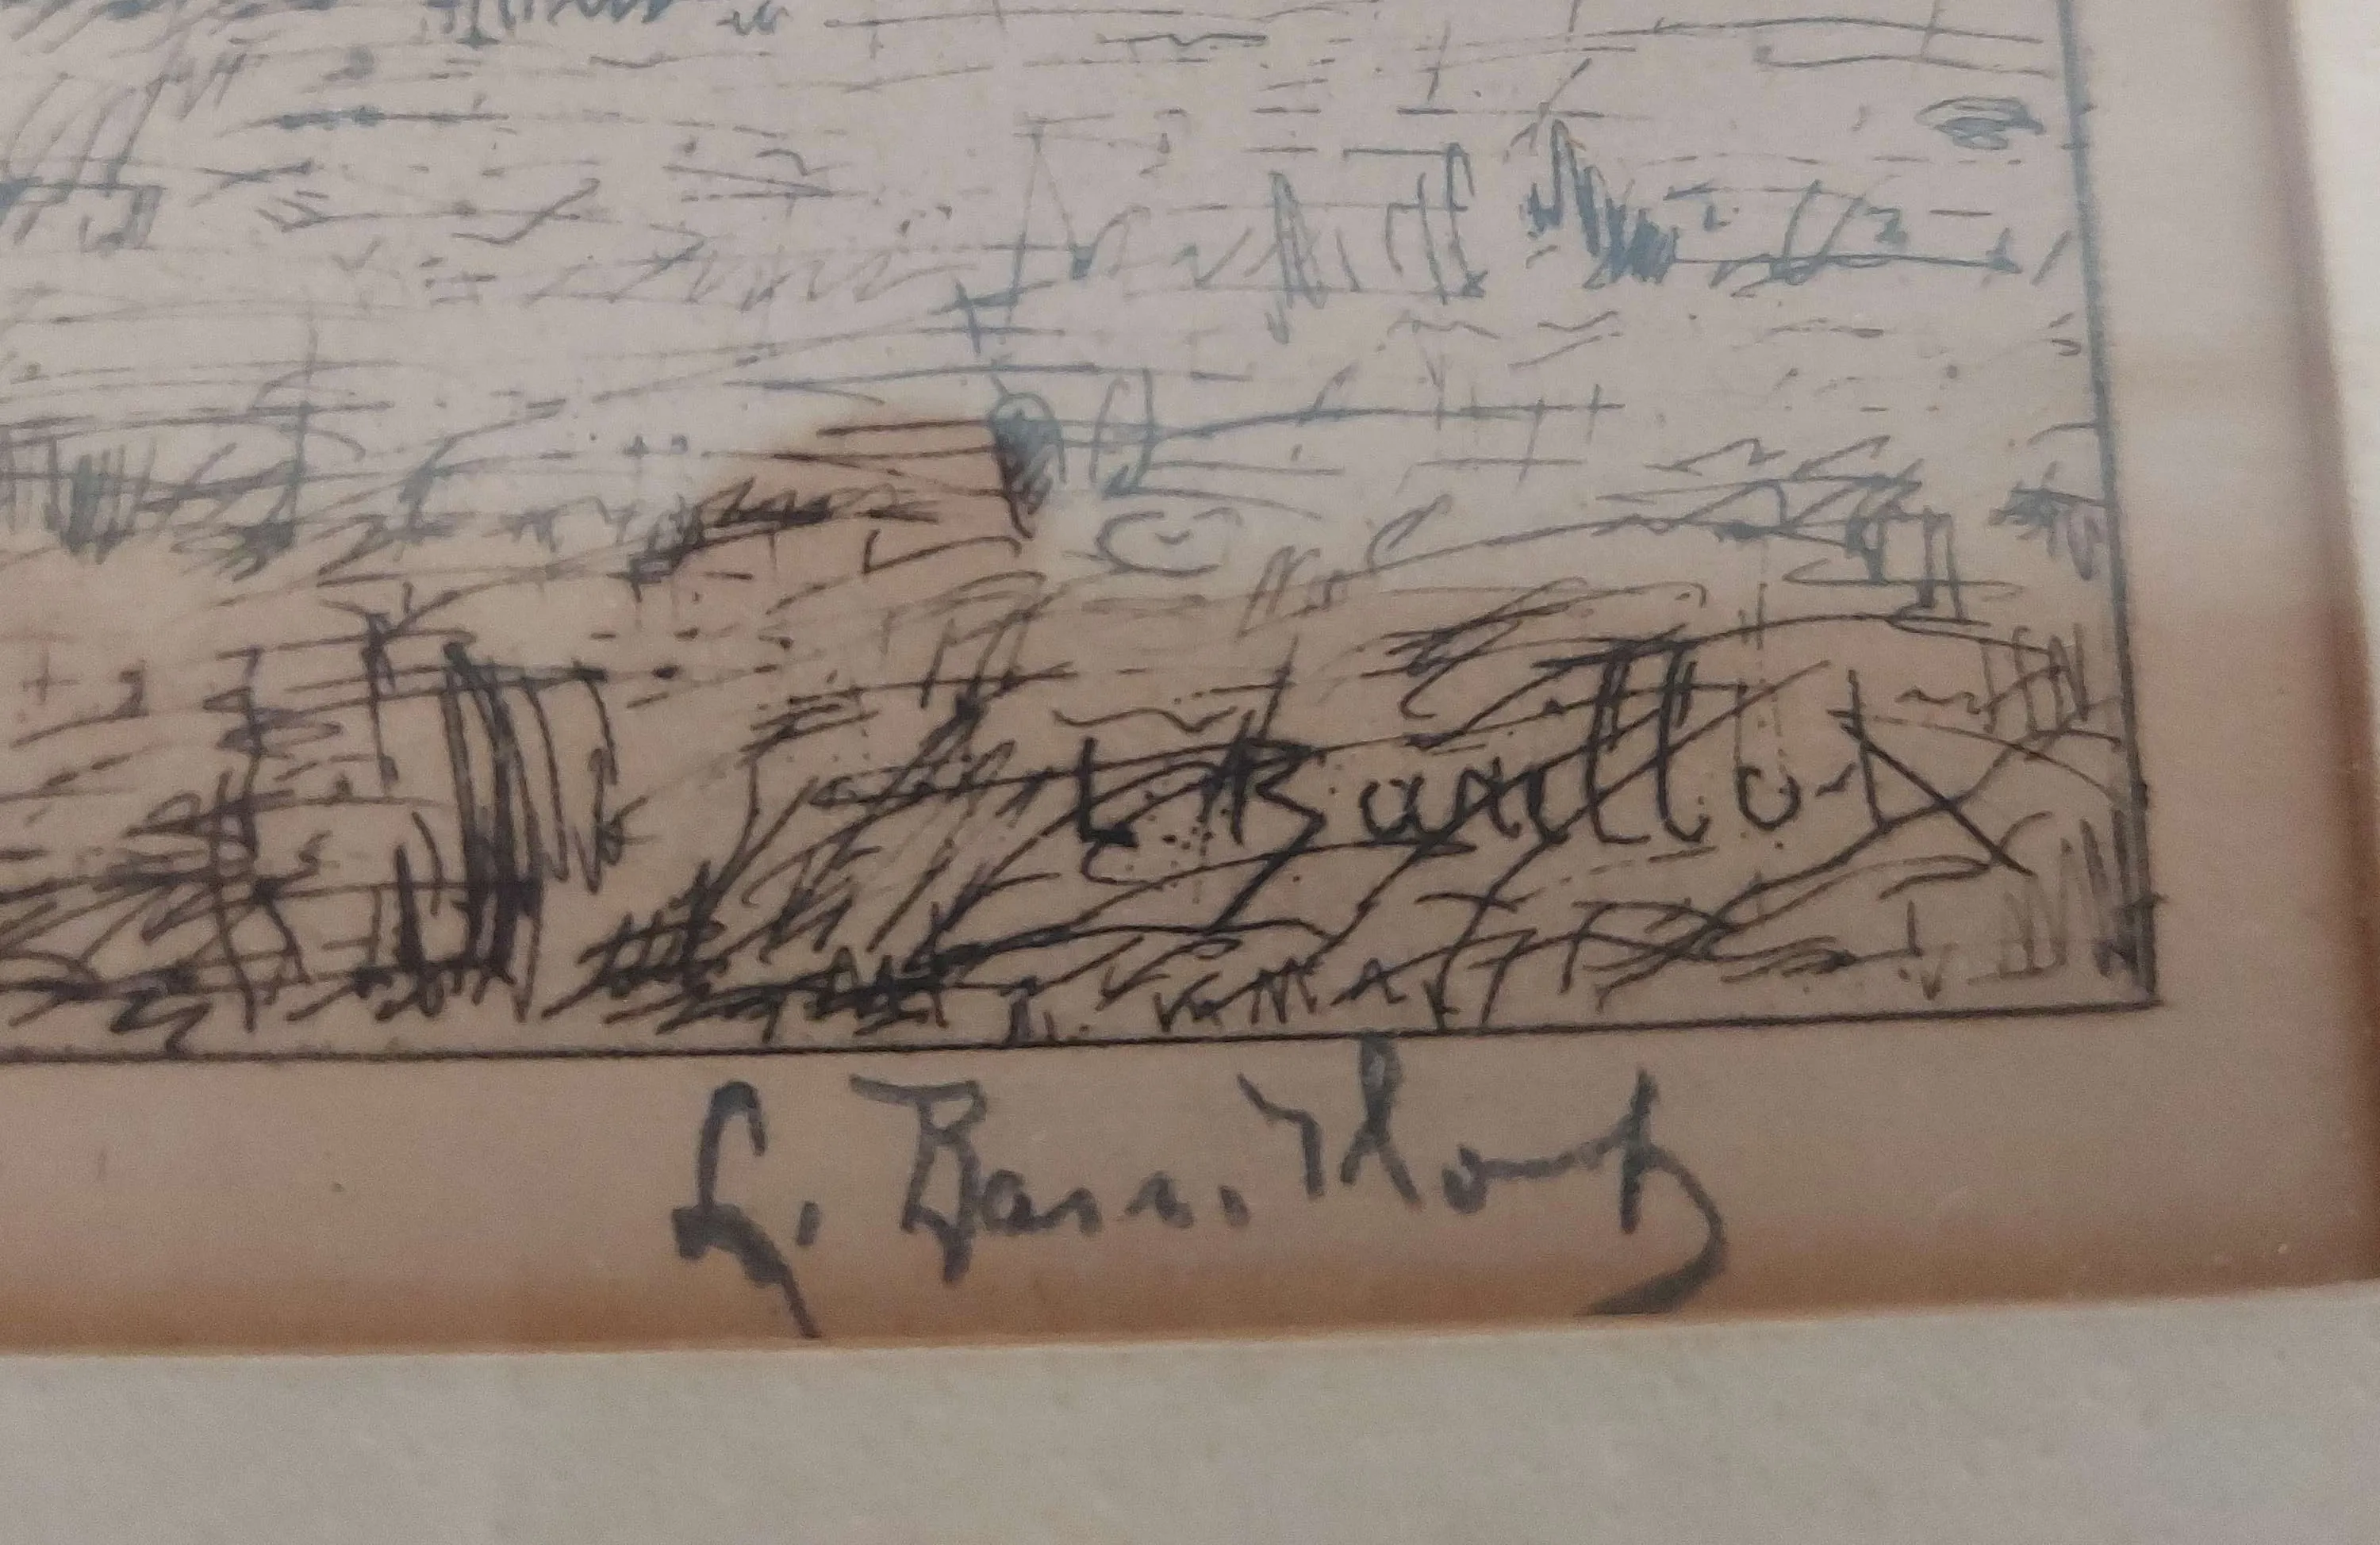 L Barillot
L. Barillot